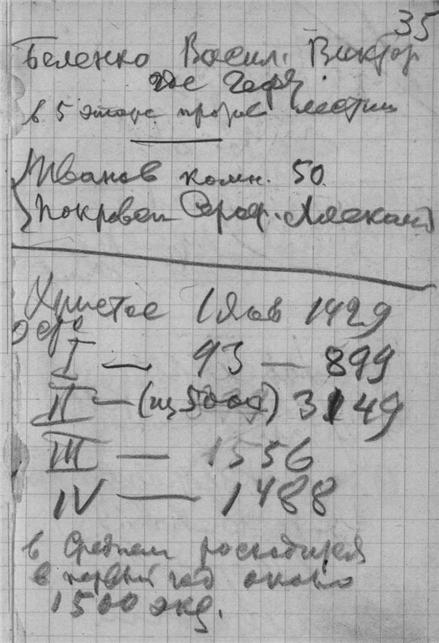 35
Беленко Васил. Виктор.
в 5 этаже
Иванов комн. 50.
Покровск Сераф. Александ
Христос 1 Янв 1429
I — 93 — 899
II — (из 5000) 3149
III — 1556
IV — 1488
в Среднем расходился
в первый год около
1500 экз.